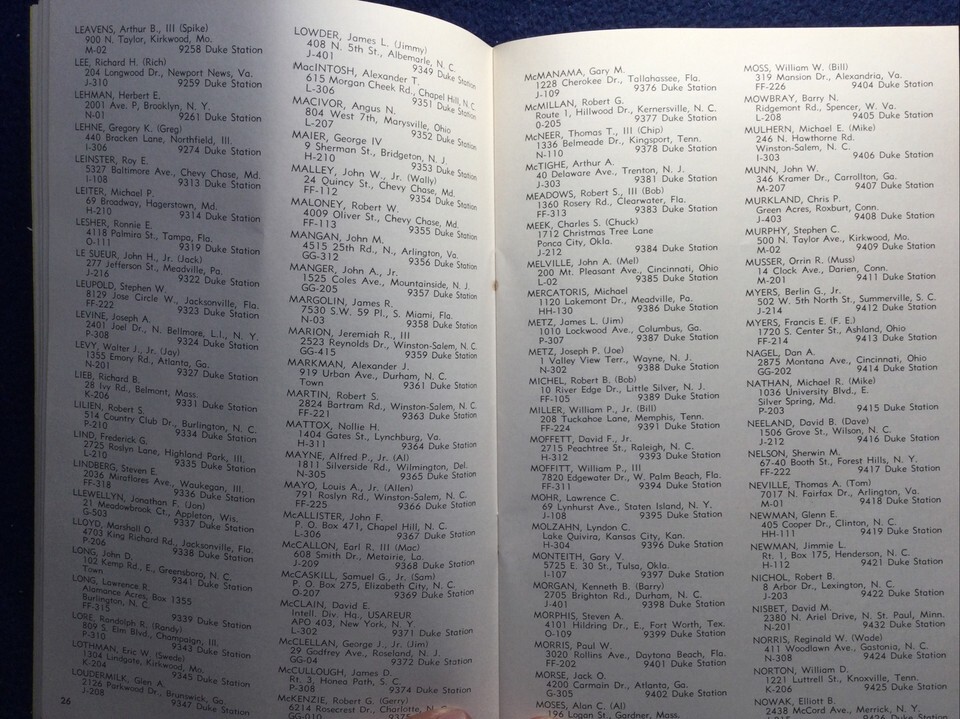 LEAVENS, Arthur B., III (Spike)
900 N. Taylor, Kirkwood, Mo.
M-02 9258 Duke Station
LEE, Richard H. (Rich)
204 Longwood Dr., Newport News, Va.
J-310 9259 Duke Station
LEHMAN, Herbert E.
2001 Ave. P, Brooklyn, N. Y.
N-01 9261 Duke Station
LEHNE, Gregory K. (Greg)
440 Bracken Lane, Northfield, Ill.
I-306 9274 Duke Station
LEINSTER, Roy E.
5327 Baltimore Ave., Chevy Chase, Md.
I-108 9313 Duke Station
LEITER, Michael P.
69 Broadway, Hagerstown, Md.
H-210 9314 Duke Station
LESHER, Ronnie E.
4118 Palmira St., Tampa, Fla.
O-111 9319 Duke Station
LE SUEUR, John H., Jr. (Jack)
277 Jefferson St., Meadville, Pa.
J-216 9322 Duke Station
LEUPOLD, Stephen W.
8129 Jose Circle W., Jacksonville, Fla.
FF-222 9323 Duke Station
LEVINE, Joseph A.
2401 Joel Dr., N. Bellmore, L.I., N. Y.
P-308 9324 Duke Station
LEVY, Walter J., Jr. (Jay)
1355 Emory Rd., Atlanta, Ga.
N-201 9327 Duke Station
LIEB, Richard B.
28 Ivy Rd., Belmont, Mass.
K-206 9331 Duke Station
LILIEN, Robert S.
514 Country Club Dr., Burlington, N. C.
P-210 9334 Duke Station
LIND, Frederick G.
2725 Roslyn Lane, Highland Park, Ill.
L-210 9335 Duke Station
LINDBERG, Steven E.
2036 Miraflores Ave., Waukegan, Ill.
FF-318 9336 Duke Station
LLEWELLYN, Jonathan F. (Jon)
21 Meadowbrook Ct., Appleton, Wis.
G-503 9337 Duke Station
LLOYD, Marshall O.
4703 King Richard Rd., Jacksonville, Fla.
P-206 9338 Duke Station
LONG, John D.
102 Kemp Rd., E., Greensboro, N. C.
Town 9341 Duke Station
LONG, Lawrence R.
Alamance Acres, Box 1355
Burlington, N. C.
FF-315 9339 Duke Station
LORE, Randolph R. (Randy)
809 S. Elm Blvd., Champaign, Ill.
P-310 9343 Duke Station
LOTHMAN, Eric W. (Swede)
1304 Lindgate, Kirkwood, Mo.
K-204 9345 Duke Station
LOUDERMILK, Glen A.
2126 Parkwood Dr., Brunswick, Ga.
J-208 9347 Duke Station
26
LOWDER, James L. (Jimmy)
408 N. 5th St., Albemarle, N. C.
J-401 9349 Duke Station
MacINTOSH, Alexander T.
615 Morgan Cheek Rd., Chapel Hill, N. C.
L-306 9351 Duke Station
MACIVOR, Angus N.
804 West 7th, Marysville, Ohio
L-207 9352 Duke Station
MAIER, George IV
9 Sherman St., Bridgeton, N. J.
H-210 9353 Duke Station
MALLEY, John W., Jr. (Wally)
24 Quincy St., Chevy Chase, Md.
FF-112 9354 Duke Station
MALONEY, Robert W.
4009 Oliver St., Chevy Chase, Md.
FF-113 9355 Duke Station
MANGAN, John M.
4515 25th Rd., N., Arlington, Va.
GG-312 9356 Duke Station
MANGER, John A., Jr.
1525 Coles Ave., Mountainside, N. J.
GG-205 9357 Duke Station
MARGOLIN, James R.
7530 S.W. 59 Pl., S. Miami, Fla.
N-03 9358 Duke Station
MARION, Jeremiah R., III
2523 Reynolds Dr., Winston-Salem, N. C.
GG-415 9359 Duke Station
MARKMAN, Alexander J.
919 Urban Ave., Durham, N. C.
Town 9361 Duke Station
MARTIN, Robert S.
2824 Bartram Rd., Winston-Salem, N. C.
FF-221 9363 Duke Station
MATTOX, Nollie H.
1404 Gates St., Lynchburg, Va.
H-311 9364 Duke Station
MAYNE, Alfred P., Jr. (Al)
1811 Silverside Rd., Wilmington, Del.
N-305 9365 Duke Station
MAYO, Louis A., Jr. (Allen)
791 Roslyn Rd., Winston-Salem, N. C.
FF-225 9366 Duke Station
McALLISTER, John F.
P. O. Box 471, Chapel Hill, N. C.
L-306 9367 Duke Station
McCALLON, Earl R. III (Mac)
608 Smith Dr., Metairie, La.
J-209 9368 Duke Station
McCASKILL, Samuel G., Jr. (Sam)
P. O. Box 275, Elizabeth City, N. C.
O-207 9369 Duke Station
McCLAIN, David E.
Intell. Div. Hq., USAREUR
APO 403, New York, N. Y.
L-302 9371 Duke Station
McCLELLAN, George J., Jr. (Jim)
29 Godfrey Ave., Roseland, N. J.
GG-04 9372 Duke Station
McCULLOUGH, James D.
Rt. 3, Honea Path, S. C.
P-308 9374 Duke Station
McKENZIE, Robert G. (Gerry)
6214 Rosecrest Dr., Charlotte, N. C.
GG-010 9375
McMANAMA, Gary M.
1228 Cherokee Dr., Tallahassee, Fla.
J-109 9376 Duke Station
McMILLAN, Robert G.
Route 1, Hillwood Dr., Kernersville, N. C.
O-205 9377 Duke Station
McNEER, Thomas T., III (Chip)
1336 Belmeade Dr., Kingsport, Tenn.
N-110 9378 Duke Station
McTIGHE, Arthur A.
40 Delaware Ave., Trenton, N. J.
J-303 9381 Duke Station
MEADOWS, Robert S., III (Bob)
1360 Rosery Rd., Clearwater, Fla.
FF-313 9383 Duke Station
MEEK, Charles S. (Chuck)
1712 Christmas Tree Lane
Ponca City, Okla.
J-212 9384 Duke Station
MELVILLE, John A. (Mel)
200 Mt. Pleasant Ave., Cincinnati, Ohio
L-02 9385 Duke Station
MERCATORIS, Michael
1120 Lakemont Dr., Meadville, Pa.
HH-130 9386 Duke Station
METZ, James L. (Jim)
1010 Lockwood Ave., Columbus, Ga.
P-307 9387 Duke Station
METZ, Joseph P. (Joe)
1 Valley View Terr., Wayne, N. J.
N-302 9388 Duke Station
MICHEL, Robert B. (Bob)
10 River Edge Dr., Little Silver, N. J.
FF-105 9389 Duke Station
MILLER, William P., Jr. (Bill)
208 Tuckahoe Lane, Memphis, Tenn.
FF-224 9391 Duke Station
MOFFETT, David F., Jr.
2715 Peachtree St., Raleigh, N. C.
H-312 9393 Duke Station
MOFFITT, William P., III
7820 Edgewater Dr., W. Palm Beach, Fla.
FF-311 9394 Duke Station
MOHR, Lawrence C.
69 Lynhurst Ave., Staten Island, N. Y.
J-108 9395 Duke Station
MOLZAHN, Lyndon C.
Lake Quivira, Kansas City, Kan.
H-304 9396 Duke Station
MONTEITH, Gary V.
5725 E. 30 St., Tulsa, Okla.
I-107 9397 Duke Station
MORGAN, Kenneth B. (Barry)
2705 Brighton Rd., Durham, N. C.
J-401 9398 Duke Station
MORPHIS, Steven A.
4101 Hildring Dr., E., Fort Worth, Tex.
O-109 9399 Duke Station
MORRIS, Paul W.
3020 Rollins Ave., Daytona Beach, Fla.
FF-202 9401 Duke Station
MORSE, Jack O.
4200 Carmain Dr., Atlanta, Ga.
G-305 9402 Duke Station
MOSES, Alan C. (Al)
196 Logan St., Gardner, Mass.
MOSS, William W. (Bill)
319 Mansion Dr., Alexandria, Va.
FF-226 9404 Duke Station
MOWBRAY, Barry N.
Ridgemont Rd., Spencer, W. Va.
L-208 9405 Duke Station
MULHERN, Michael E. (Mike)
246 N. Hawthorne Rd.
Winston-Salem, N. C.
I-303 9406 Duke Station
MUNN, John W.
346 Kramer Dr., Carrollton, Ga.
M-207 9407 Duke Station
MURKLAND, Chris P.
Green Acres, Roxburt, Conn.
J-403 9408 Duke Station
MURPHY, Stephen C.
500 N. Taylor Ave., Kirkwood, Mo.
M-02 9409 Duke Station
MUSSER, Orrin R. (Muss)
14 Clock Ave., Darien, Conn.
M-201 9411 Duke Station
MYERS, Berlin G., Jr.
502 W. 5th North St., Summerville, S. C.
J-214 9412 Duke Station
MYERS, Francis E. (F. E.)
1720 S. Center St., Ashland, Ohio
FF-214 9413 Duke Station
NAGEL, Dan A.
2875 Montana Ave., Cincinnati, Ohio
GG-202 9414 Duke Station
NATHAN, Michael R. (Mike)
1036 University Blvd., E.
Silver Spring, Md.
P-203 9415 Duke Station
NEELAND, David B. (Dave)
1506 Grove St., Wilson, N. C.
J-212 9416 Duke Station
NELSON, Sherwin M.
67-40 Booth St., Forest Hills, N. Y.
FF-222 9417 Duke Station
NEVILLE, Thomas A. (Tom)
7017 N. Fairfax Dr., Arlington, Va.
M-01 9418 Duke Station
NEWMAN, Glenn E.
405 Cooper Dr., Clinton, N. C.
HH-111 9419 Duke Station
NEWMAN, Jimmie L.
Rt. 1, Box 175, Henderson, N. C.
H-112 9421 Duke Station
NICHOL, Robert B.
8 Arbor Dr., Lexington, N. C.
J-203 9422 Duke Station
NISBET, David M.
2380 N. Ariel Drive, N. St. Paul, Minn.
N-201 9432 Duke Station
NORRIS, Reginald W. (Wade)
411 Woodlawn Ave., Gastonia, N. C.
N-308 9424 Duke Station
NORTON, William D.
1221 Luttrell St., Knoxville, Tenn.
K-206 9425 Duke Station
NOWAK, Elliott B.
2438 McCord Ave., Merrick, N. Y.